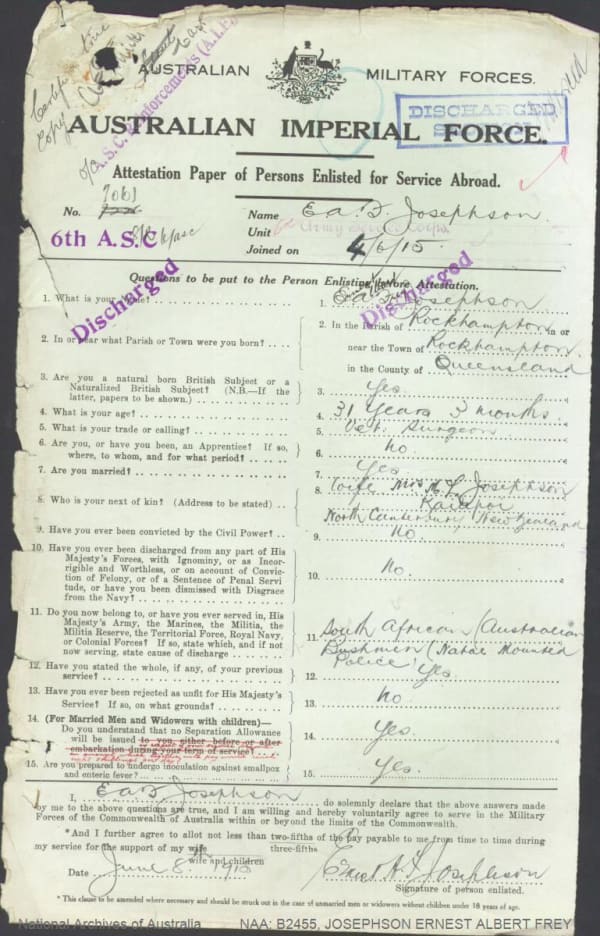 Certified true
Copy
A.S.C. Reinforcements (A.I.F.)
AUSTRALIAN MILITARY FORCES.
DISCHARGED
AUSTRALIAN IMPERIAL FORCE.
Attestation Paper of Persons Enlisted for Service Abroad.
No. Name E A. F. Josephson.
6th A.S.C Unit Army Service Corps.
Joined on 4/6/15.
Discharged
Discharged
Questions to be put to the Person Enlisting before Attestation.
1. What is your Name? 1. E A F Josephson
2. In or near what Parish or Town were you born? 2. In the Parish of Rockhampton in or
near the Town of Rockhampton.
in the County of Queensland
3. Are you a natural born British Subject or a
Naturalized British Subject? (N.B.—If the
latter, papers to be shown.) 3. Yes.
4. What is your age? 4. 31 Years 3 months.
5. What is your trade or calling? 5. Vet. Surgeon
6. Are you, or have you been, an Apprentice? If so,
where, to whom, and for what period? 6. No.
7. Are you married? 7. Yes
8. Who is your next of kin? (Address to be stated) 8. Wife Mrs M. Josephson
Kaiapoi
North Canterbury, New Zealand
9. Have you ever been convicted by the Civil Power? 9. No.
10. Have you ever been discharged from any part of His
Majesty's Forces, with Ignominy, or as Incor-
rigible and Worthless, or on account of Convic-
tion of Felony, or of a Sentence of Penal Servi-
tude, or have you been Dismissed with Disgrace
from the Navy? 10. No.
11. Do you now belong to, or have you ever served in, His
Majesty's Army, the Marines, the Militia, the
Militia Reserve, the Territorial Force, Royal Navy,
or Colonial Forces? If so, state which, and if not
now serving, state cause of discharge 11. South African (Australian
Bushmen (Natal Mounted
Police)
12. Have you stated the whole, if any, of your previous
service? 12. Yes.
13. Have you ever been rejected as unfit for His Majesty's
Service? If so, on what grounds? 13. No.
14. (For Married Men and Widowers with children)—
Do you understand that no Separation Allowance
will be issued to you, either before or after
embarkation during your term of service? 14. Yes.
15. Are you prepared to undergo inoculation against smallpox
and enteric fever? 15. Yes.
I, E A F Josephson do solemnly declare that the above answers made
by me to the above questions are true, and I am willing and hereby voluntarily agree to serve in the Military
Forces of the Commonwealth of Australia within or beyond the limits of the Commonwealth.
*And I further agree to allot not less than two-fifths of the pay payable to me from time to time during
three-fifths
my service for the support of my wife
wife and children
Date June 8th 1915 Ernest A F Josephson
Signature of person enlisted.
*This clause to be amended where necessary and should be struck out in the case of unmarried men or widowers without children under 18 years of age.
National Archives of Australia NAA: B2455, JOSEPHSON ERNEST ALBERT FREY